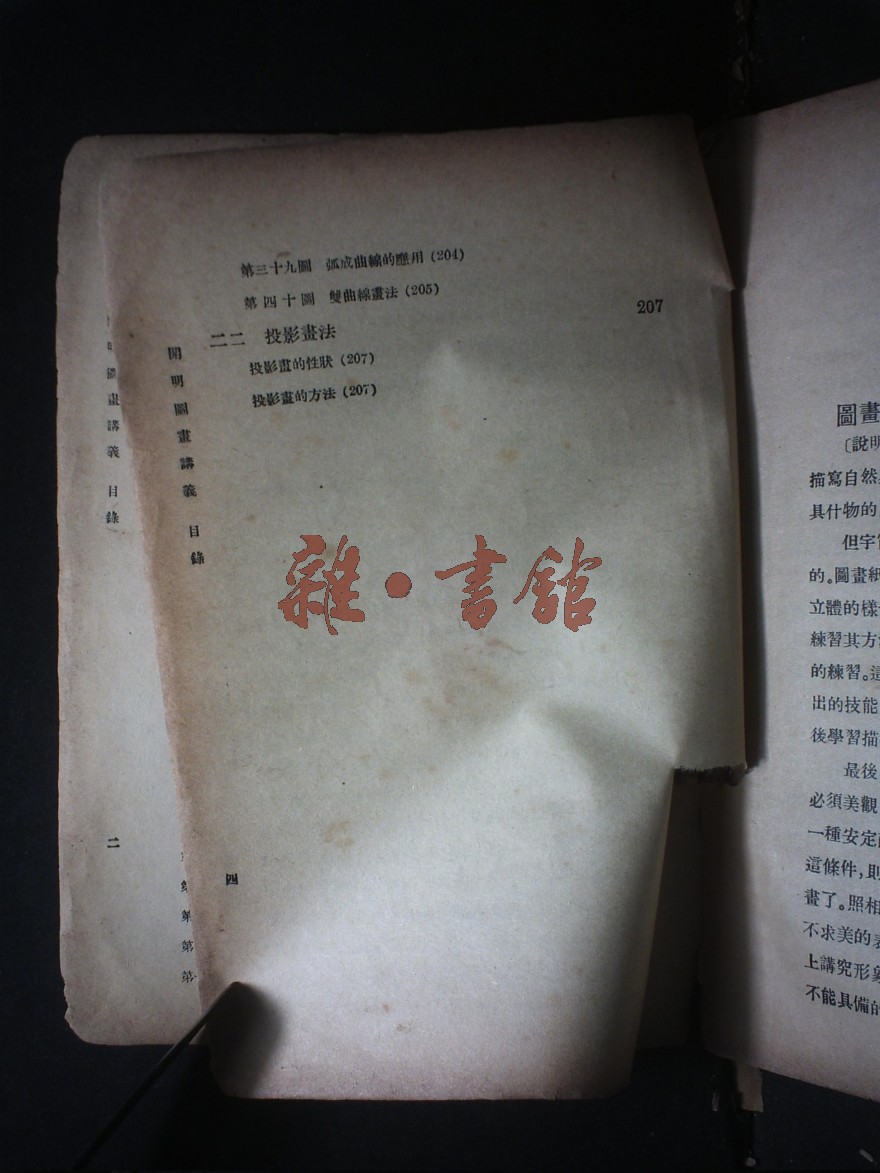 第三十九圖 弧成曲線的應用 (204)
第四十圖 雙曲線畫法 (205)
二二 投影畫法 207
投影畫的性狀 (207)
投影畫的方法 (207)
開明圖畫講義 目錄
四
明圖畫講義 目錄
二
第
第
雜·書舘
圖畫
〔說明
描寫自然
具什物的
但宇
的。圖畫紙
立體的樣
練習其方
的練習。這
出的技能
後學習描
最後
必須美觀
一種安定
這條件,則
畫了。照相
不求美的表
上講究形象
不能具備的